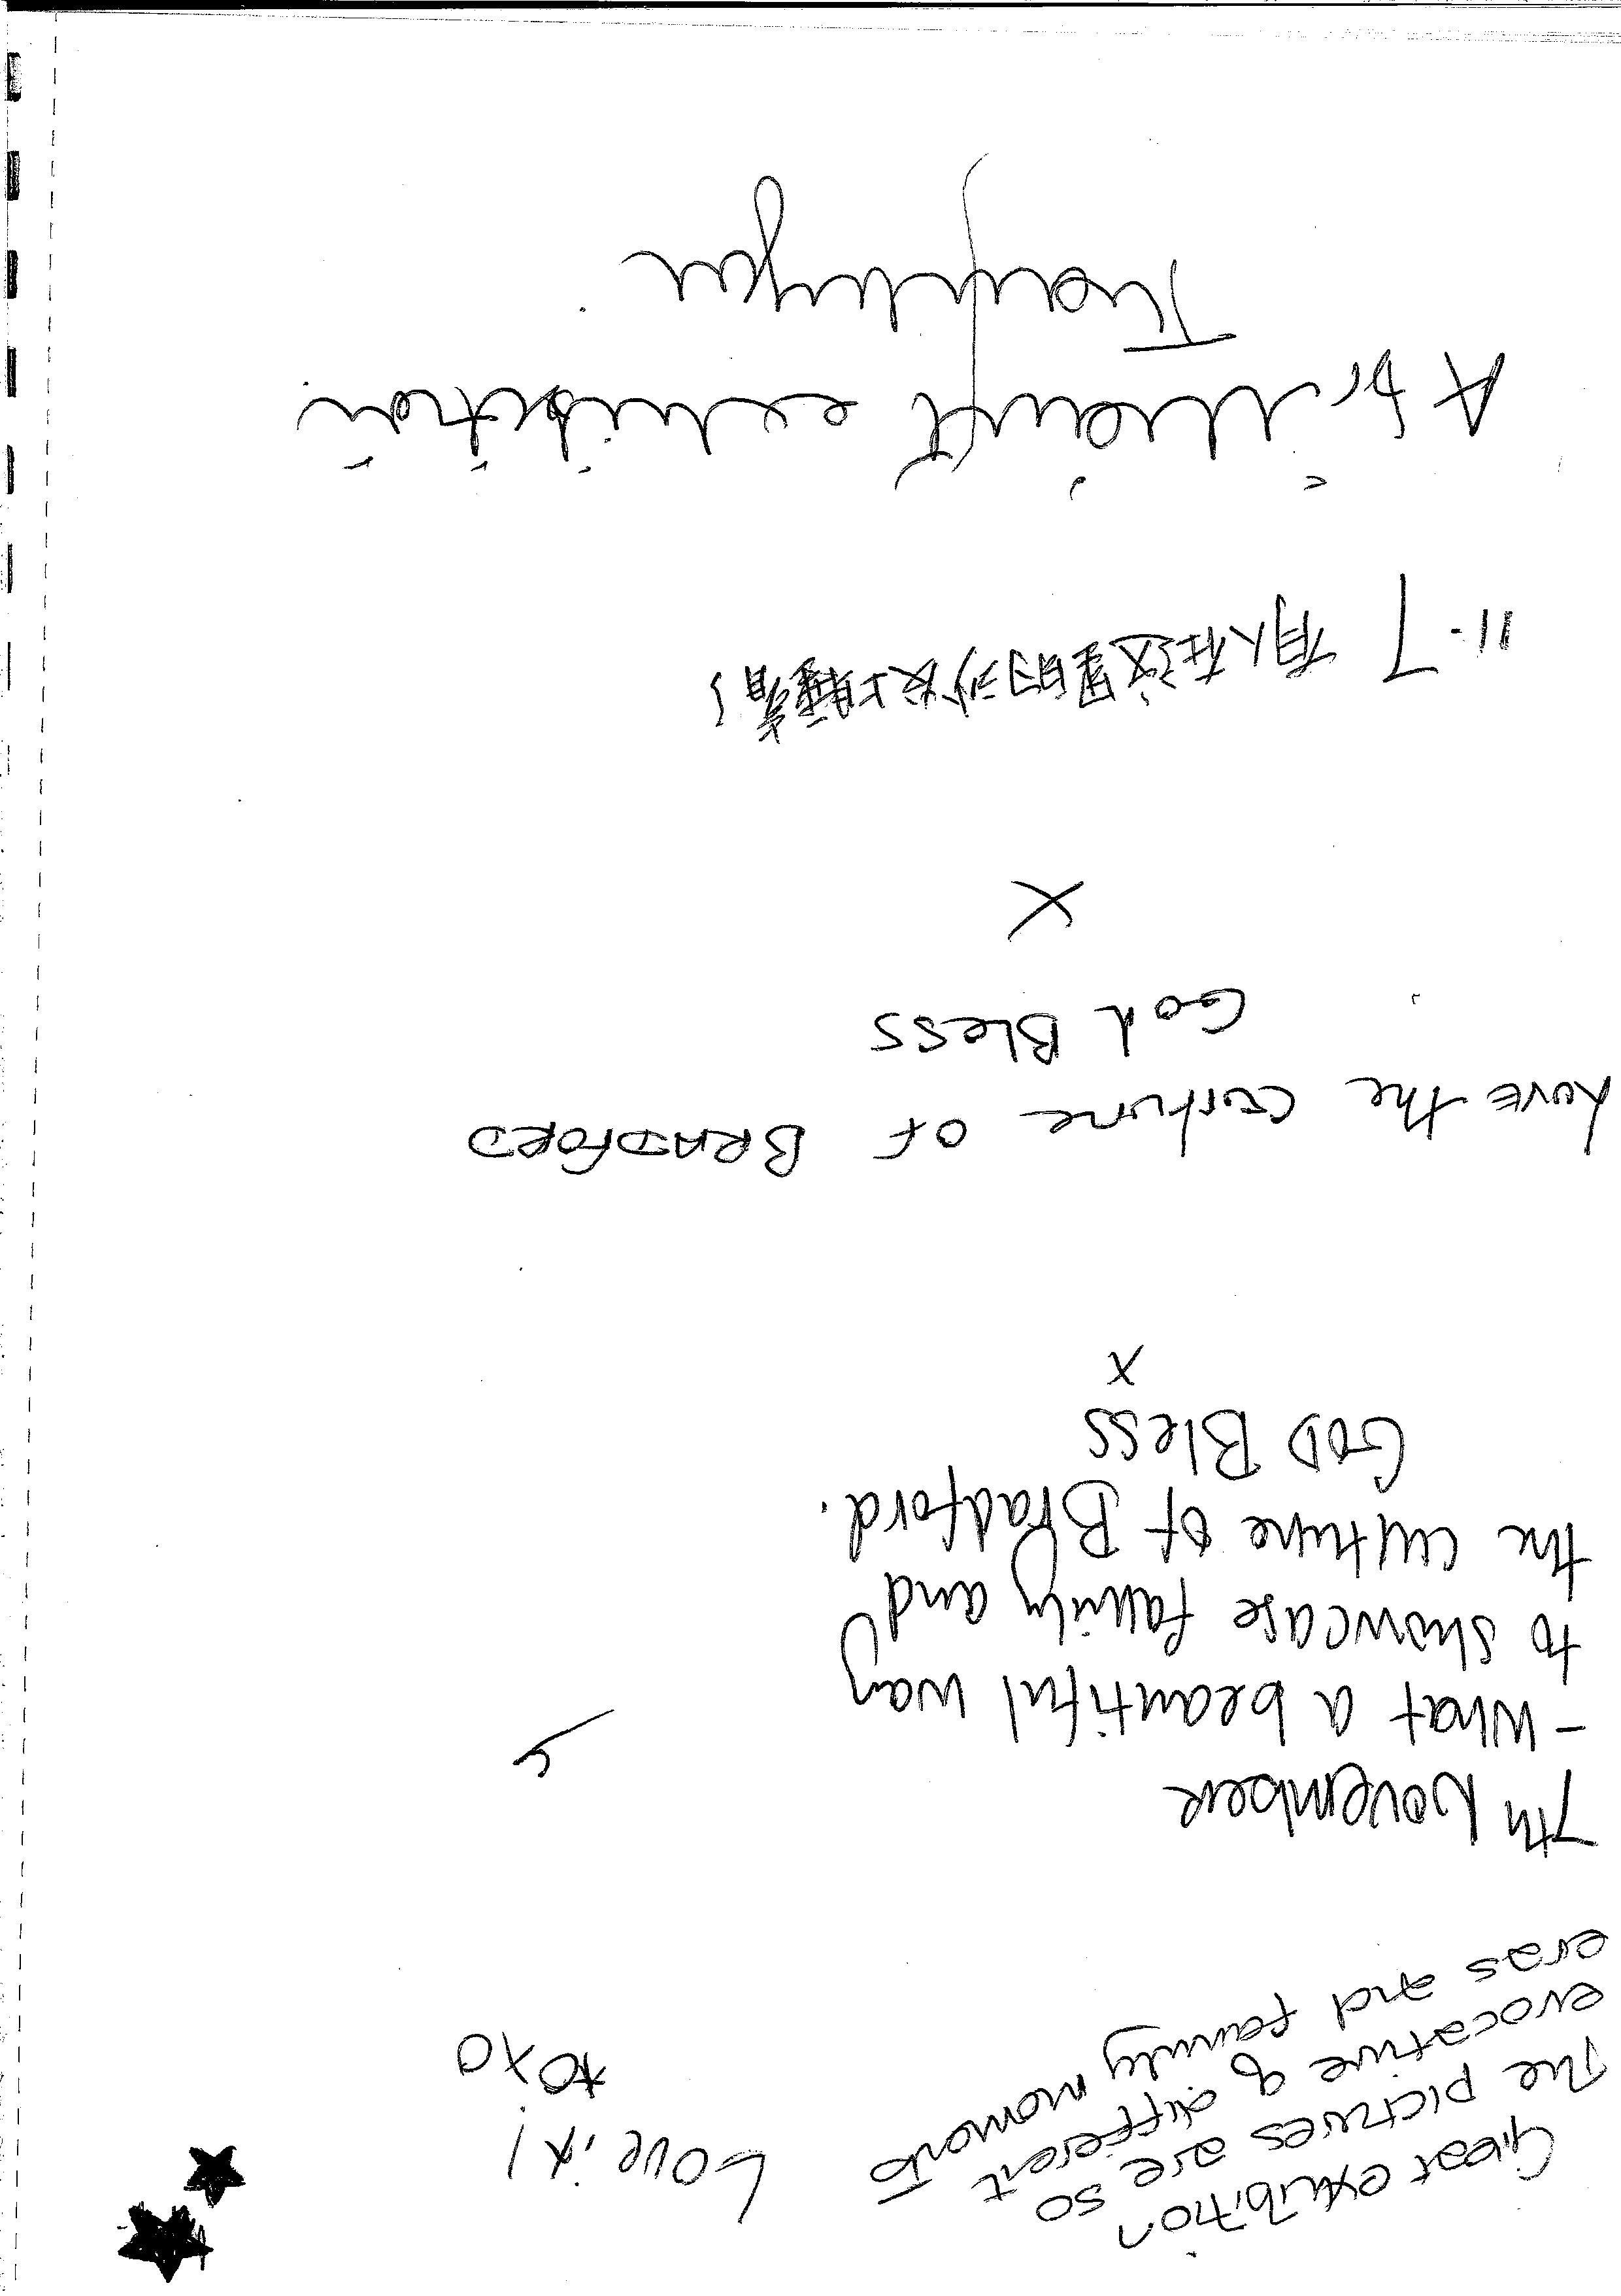 Great exhibition
The pictures are so
evocative of different
eras and family moments
Love it!
xoxo
7th November
- What a beautiful way
to showcase family and
the culture of Bradford.
GOD Bless
x
Love the culture of BRADFORD
God Bless
X
11.7 有人在这看的
A brilliant exhibition